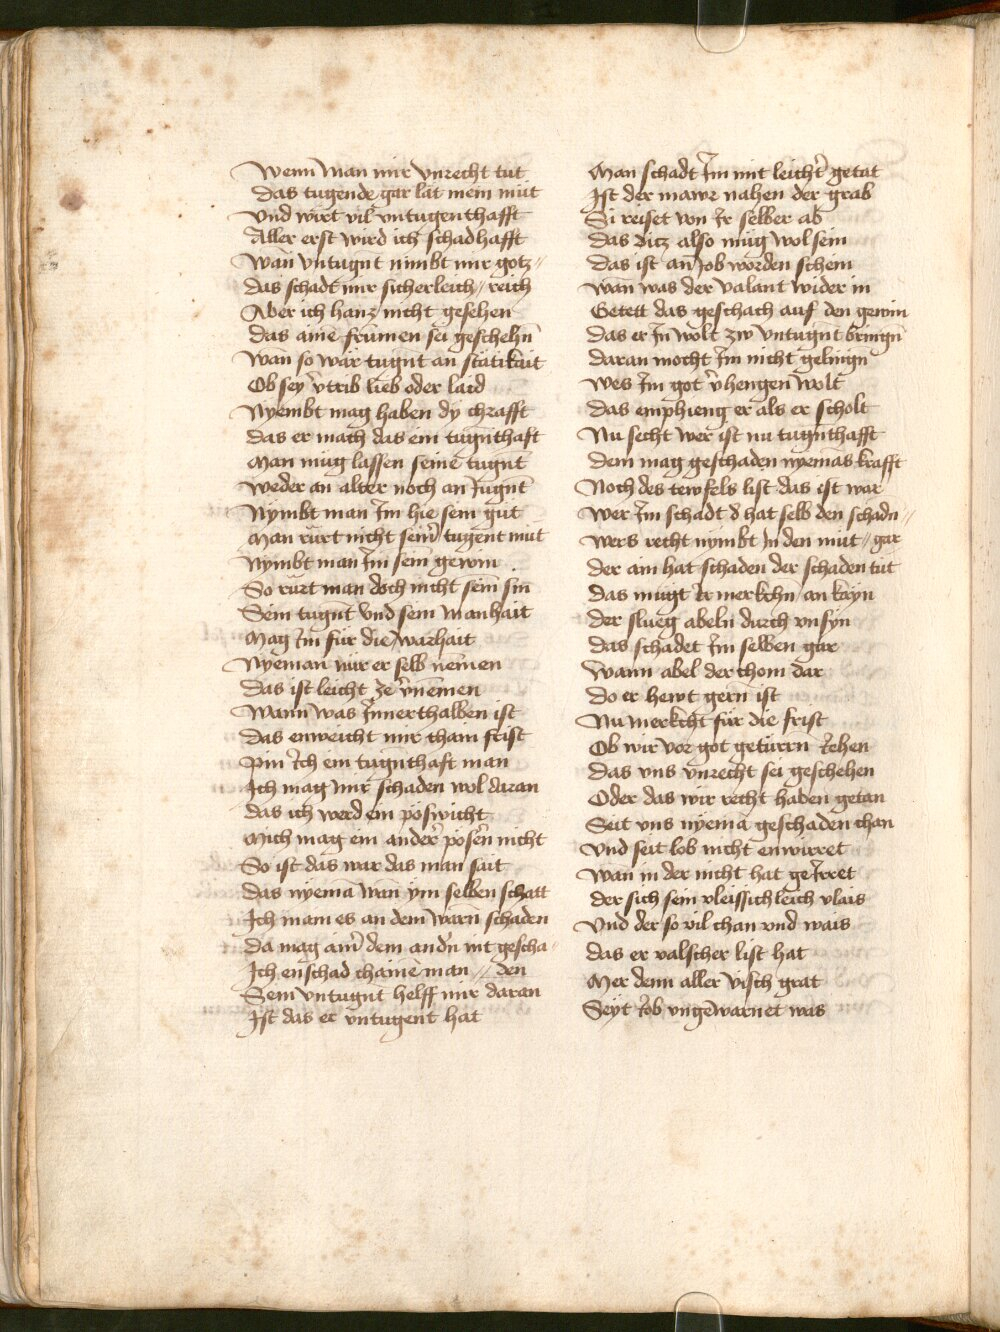 Wenn man mir vnrecht tut
Das tugende gar lat mein mut
Vnd wirt vil vntugenthafft
Aller erst wird ich schadhafft
Wan vntugnt nimbt mir gotz //
Das schadt mir sicherleich // reich
Aber ich hanz nicht gesehen
Das aine frumen sei geschehn̄
Wan so wär tugnt an statikait
Ob sey v̓trib lieb oder laid
Nyembt mag haben dy chrafft
Das er mach das ein tugnthaft
Man mug lassen seine tugnt
Weder an alter noch an Jugnt
Nymbt man Im hie sein gut
Man rürt nicht sein̓ tugent mut
Nymbt man Im sein gewin
So rürt man doch nicht sein sin
Sein tugnt vnd sein manhait
Mag Im für die warhait
Nyeman wir er selb nemen
Das ist leicht ze v̓nemen
Wann was Innerthalben ist
Das enweicht mir chain frist
Pin Ich ein tugnthaft man
Ich mag mir schaden wol daran
Das ich werd ein pöswicht
Mich mag ein ander̓ pösern nicht
So ist das war das man sait
Das nyemā wan ym selben schatt
Ich main es an dem warn schaden
Da mag ain̓ dem andn̓ nit gescha
Ich enschad chainē man // den
Sein vntugnt helff mir daran
Ist das er vntugent hat
Man schadt Im mit leicht̓ getat
Ist der mawr nahen der grab
Si reiset von Ir selber ab
Das ditz also mug wol sein
Das ist an Job worden schein
Wan was der valant wider in
Getett das geschach auf den gewin
Das er In wolt zw vntugnt bringn̄
Daran mocht Im nicht gelingn̄
Wes Im got v̓hengen wolt
Das emphieng er als er scholt
Nu secht wer ist nu tugnthafft
Dem mag geschaden nyemās krafft
Noch des tewfels list das ist war
Wer Im schadt d̓ hat selb den schadn //
Wers recht nymbt In den mut // gar
Der ain hat schaden der schaden tut
Das mugt Ir merkchn̄ an kayn
Der slueg abeln durch vnsyn
Das schadet Im selben gar
Wann abel der chom dar
Do er hewt gern ist
Nu merkcht für die frist
Ob wir vor got geturrn Iehen
Das vns vnrecht sei geschehen
Oder das wir recht haben getan
Seit vns nyemā geschaden chan
Vnd seit lob nicht enwirret
Wan in der nicht hat geIrret
Der sich sein vleissichleich vlais
Vnd der so vil chan vnd wais
Das er valscher list hat
Mer denn aller visch grat
Seyt Iob vngewarnet was